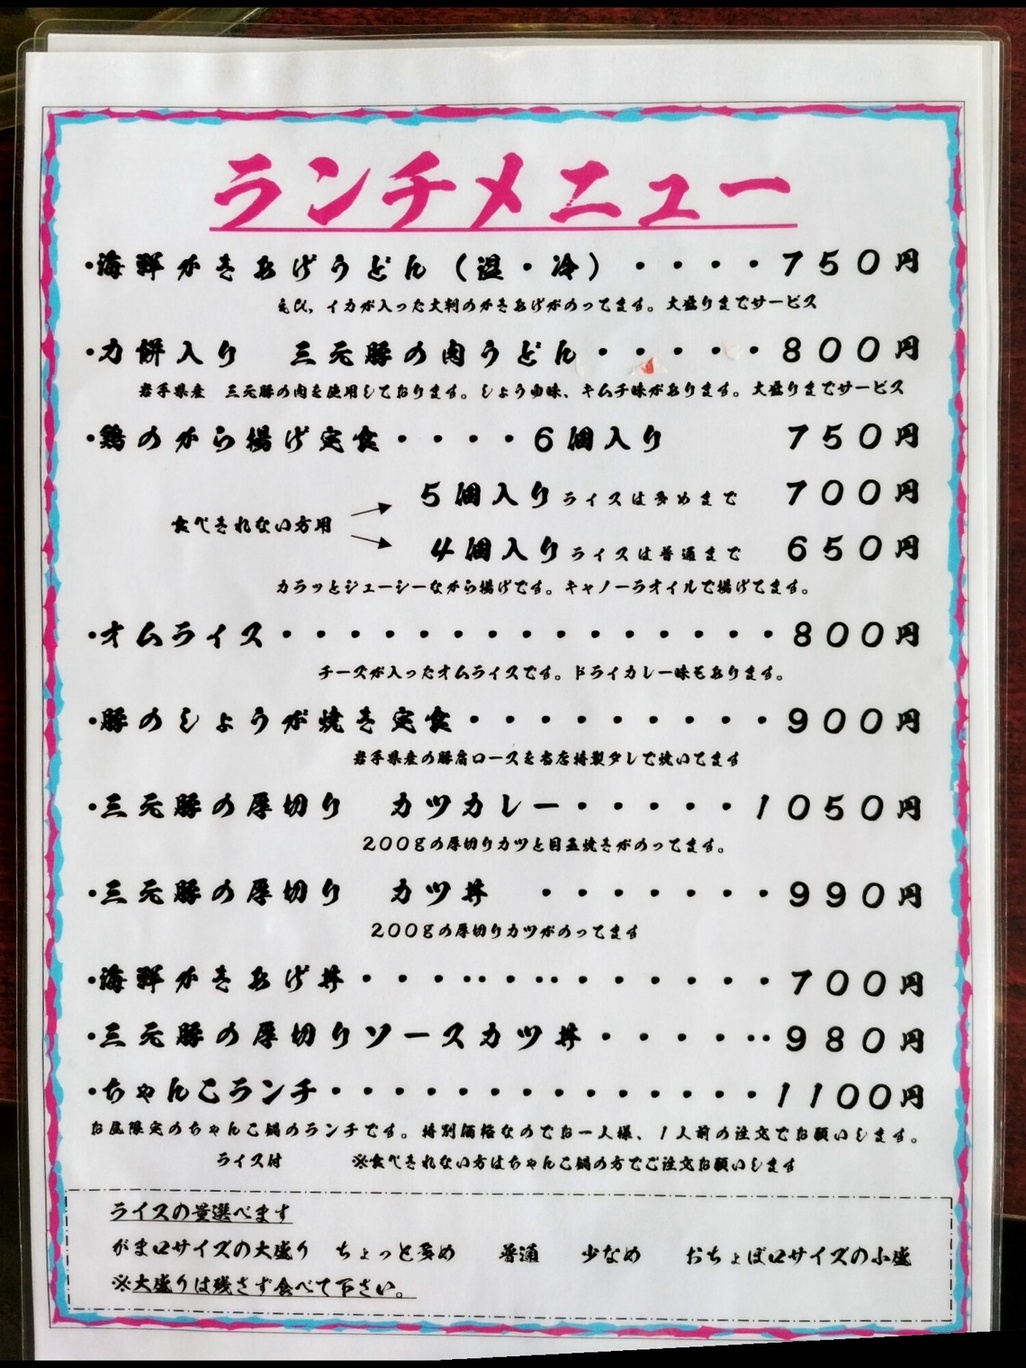 ランチメニュー
・海鮮かきあげうどん（温・冷）・・・・750円
えび、イカが入った大判のかきあげがのってます。大盛りまでサービス
・力餅入り　三元豚の肉うどん・・・・・800円
岩手県産　三元豚の肉を使用しております。しょうゆ味、キムチ味があります。大盛りまでサービス
・鶏のから揚げ定食・・・・6個入り　750円
5個入りライスは多めまで　700円
食べきれない方用
4個入りライスは普通まで　650円
カラッとジューシーなから揚げです。キャノーラオイルで揚げてます。
・オムライス・・・・・・・・・・・・・・・・・・800円
チーズが入ったオムライスです。ドライカレー味もあります。
・豚のしょうが焼き定食・・・・・・・・・・・900円
岩手県産の豚肩ロースを当店特製タレで焼いてます
・三元豚の厚切り　カツカレー・・・・・・1050円
200gの厚切りカツと目玉焼きがのってます。
・三元豚の厚切り　カツ丼　・・・・・・・990円
200gの厚切りカツがのってます
・海鮮かきあげ丼・・・・・・・・・・・・・・700円
・三元豚の厚切りソースカツ丼・・・・・・980円
・ちゃんこランチ・・・・・・・・・・・・・・・1100円
お昼限定のちゃんこ鍋のランチです。特別価格なのでお一人様、1人前の注文でお願いします。
ライス付　※食べきれない方はちゃんこ鍋の方でご注文お願いします
ライスの量選べます
がま口サイズの大盛り　ちょっと多め　普通　少なめ　おちょぼ口サイズの小盛
※大盛りは残さず食べて下さい。